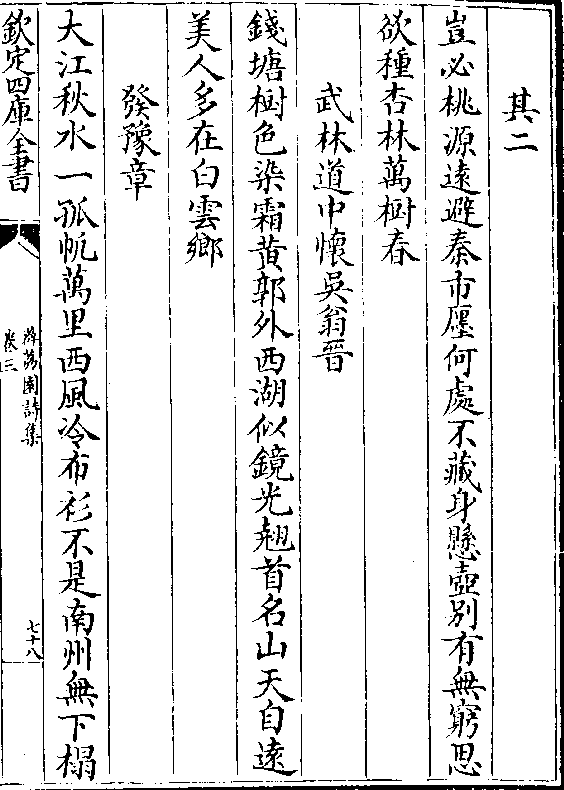 其二
豈必桃源遠避秦市廛何處不藏身懸壺別有無窮思
欲種杏林萬樹春
武林道中懷吳翁晉
錢塘樹色染霜黄郭外西湖似鏡光翹首名山天自遠
美人多在白雲鄉
發豫章
大江秋水一孤帆萬里西風冷布衫不是南州無下榻
欽定四庫全書
薜荔園詩集
卷三
七十八